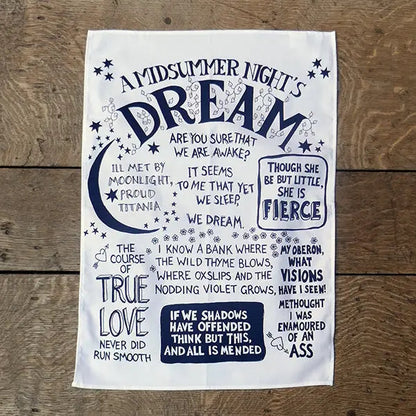 A MIDSUMMER NIGHT'S
DREAM
ARE YOU SURE THAT
WE ARE AWAKE?
IT SEEMS
TO ME THAT YET
WE SLEEP
WE DREAM.
ILL MET BY
MOONLIGHT,
PROUD
TITANIA
THOUGH SHE
BE BUT LITTLE,
SHE IS
FIERCE
THE
COURSE
OF
TRUE
LOVE
NEVER DID
RUN SMOOTH
I KNOW A BANK WHERE
THE WILD THYME BLOWS,
WHERE OXSLIPS AND THE
NODDING VIOLET GROWS,
MY OBERON,
WHAT
VISIONS
HAVE I SEEN!
METHOUGHT
I WAS
ENAMOURED
OF AN
ASS
IF WE SHADOWS
HAVE OFFENDED
THINK BUT THIS,
AND ALL IS MENDED